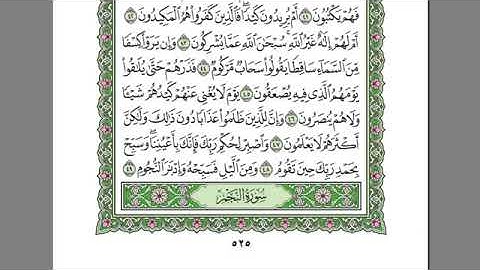 فَهُم يَكْتُبُونَ ٤١ أَمْ يُرِيدُونَ كَيْدًا فَالَّذِينَ كَفَرُوا هُمُ الْمَكِيدُونَ ٤٢
أَمْ لَهُمْ إِلَٰهٌ غَيْرُ اللَّهِ سُبْحَٰنَ اللَّهِ عَمَّا يُشْرِكُونَ ٤٣ وَإِن يَرَوْا كِسْفًا
مِّنَ السَّمَآءِ سَاقِطًا يَقُولُوا سَحَابٌ مَّرْكُومٌ ٤٤ فَذَرْهُمْ حَتَّىٰ يُلَٰقُوا
يَوْمَهُمُ الَّذِي فِيهِ يُصْعَقُونَ ٤٥ يَوْمَ لَا يُغْنِي عَنْهُمْ كَيْدُهُمْ شَيْـًٔا
وَلَا هُمْ يُنصَرُونَ ٤٦ وَإِنَّ لِلَّذِينَ ظَلَمُوا عَذَابًا دُونَ ذَٰلِكَ وَلَٰكِنَّ
أَكْثَرَهُمْ لَا يَعْلَمُونَ ٤٧ وَاصْبِرْ لِحُكْمِ رَبِّكَ فَإِنَّكَ بِأَعْيُنِنَا وَسَبِّحْ
بِحَمْدِ رَبِّكَ حِينَ تَقُومُ ٤٨ وَمِنَ اللَّيْلِ فَسَبِّحْهُ وَإِدْبَٰرَ النُّجُومِ ٤٩
سُورَةُ النَّجْمِ
٥٢٥